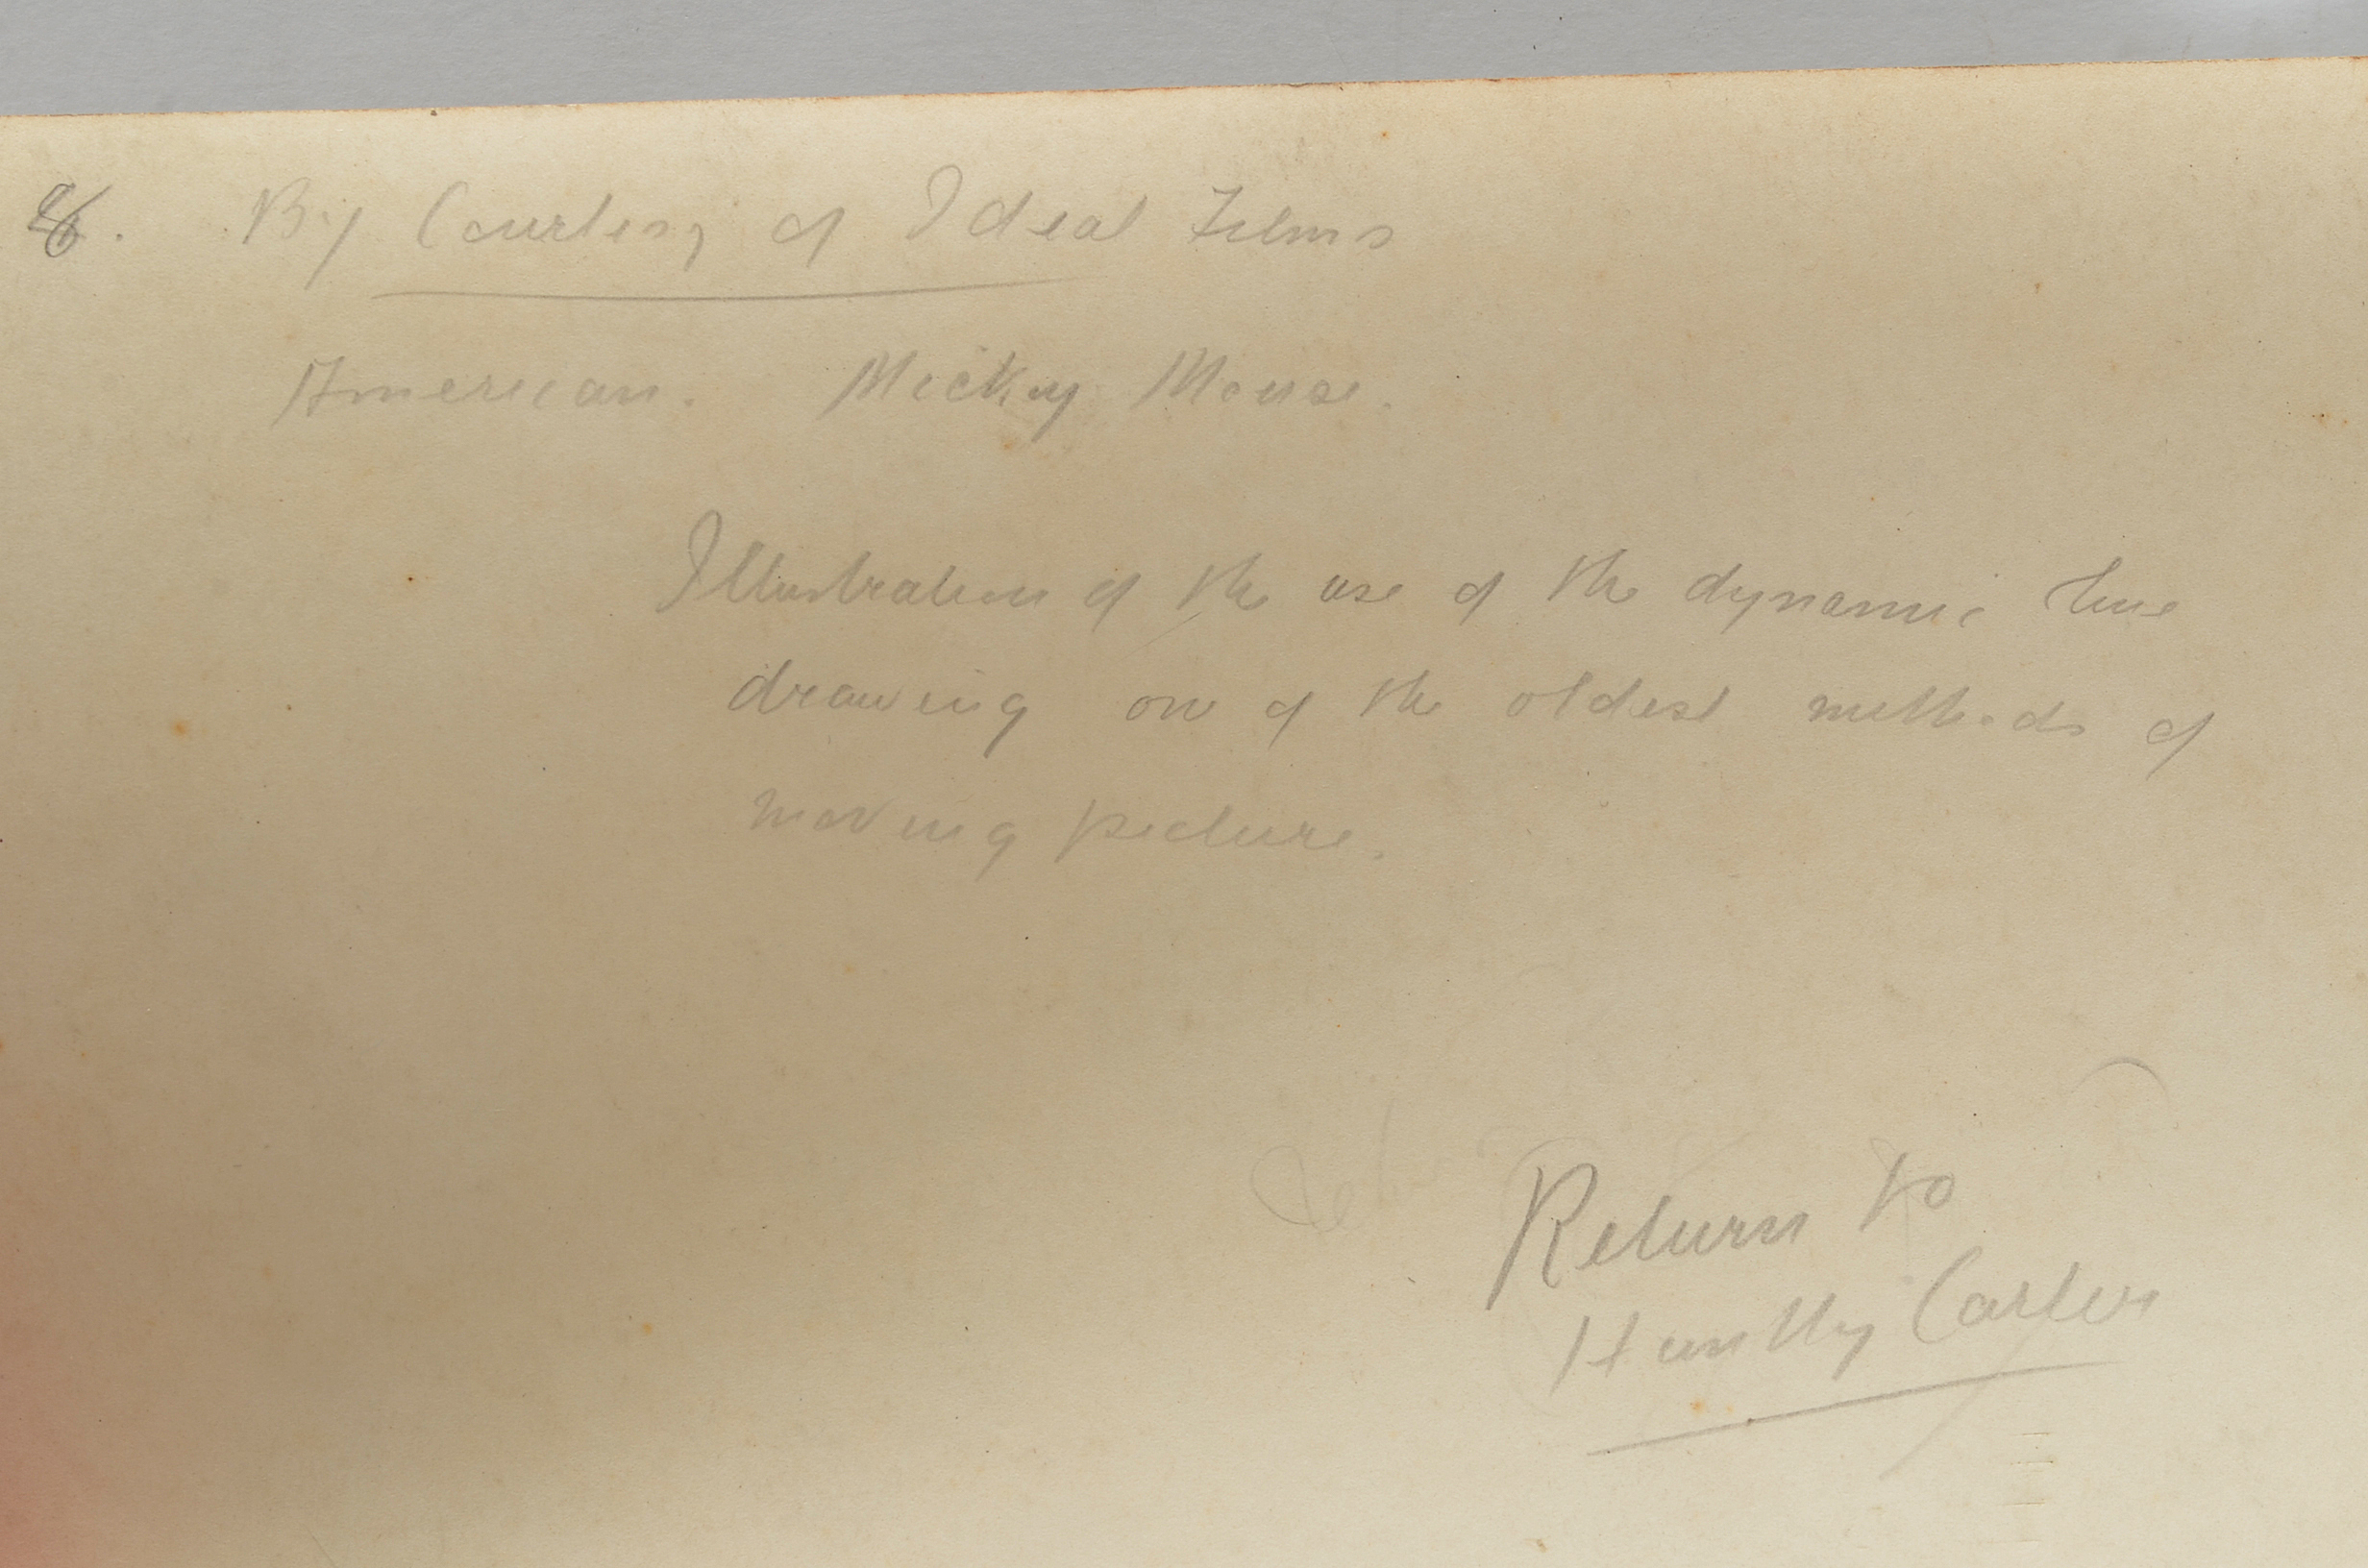 8. By Courtesy of Ideal Films
American. Mickey Mouse.
Illustration of the use of the dynamic line
drawing one of the oldest methods of
moving picture.
Return to
Huntly Carter